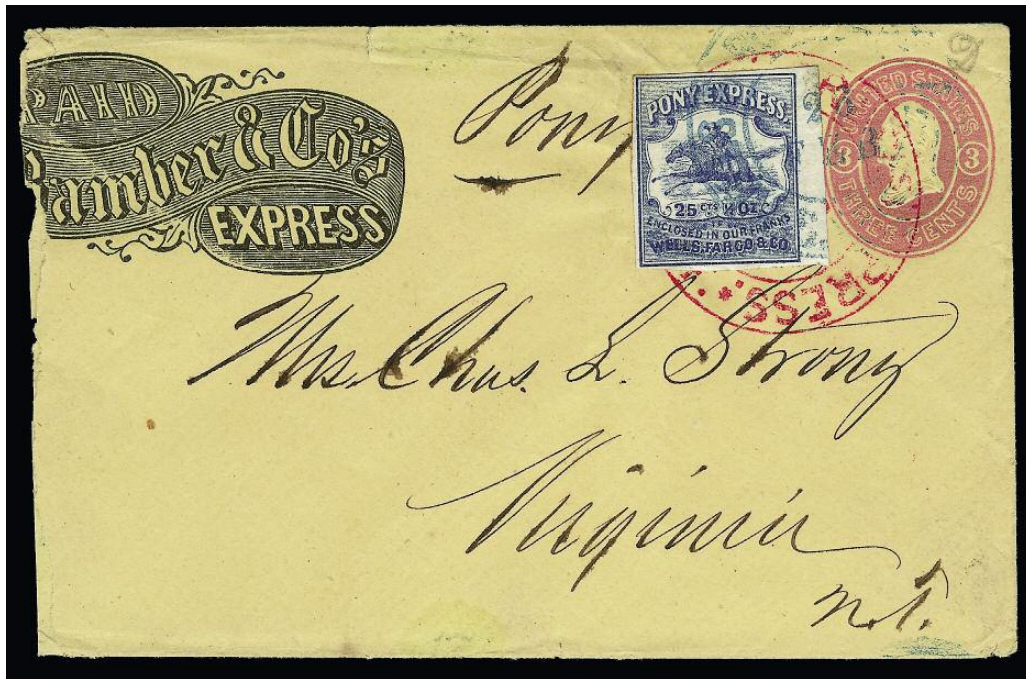 PAID
Bamber & Co's
EXPRESS
Pony
PONY EXPRESS
25 CTS ½ OZ.
ENCLOSED IN OUR FRANKS
WELLS, FARGO & CO.
UNITED STATES
3 3
THREE CENTS
PRESS
Mrs. Chas. L. Strong
Virginia
N.T.